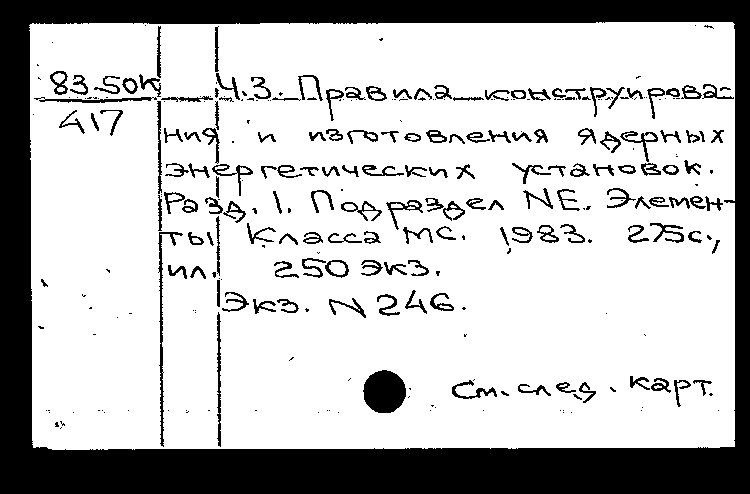 83-50к Ч.3. Правила конструирова-
417
ния и изготовления ядерных
энергетических установок.
Разд. I. Подраздел NE. Элемен-
ты класса МС. 1983. 275с.,
ил. 250 экз.
Экз. N 246.
См. след. карт.